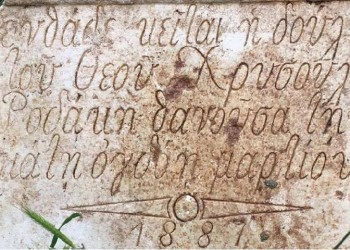 ενθάδε κεῖται η δουλ
τοῦ Θεοῦ Χρυσοῦλ
Ροδάκη θανοῦσα τη
ογδόη μαρτίου
1881